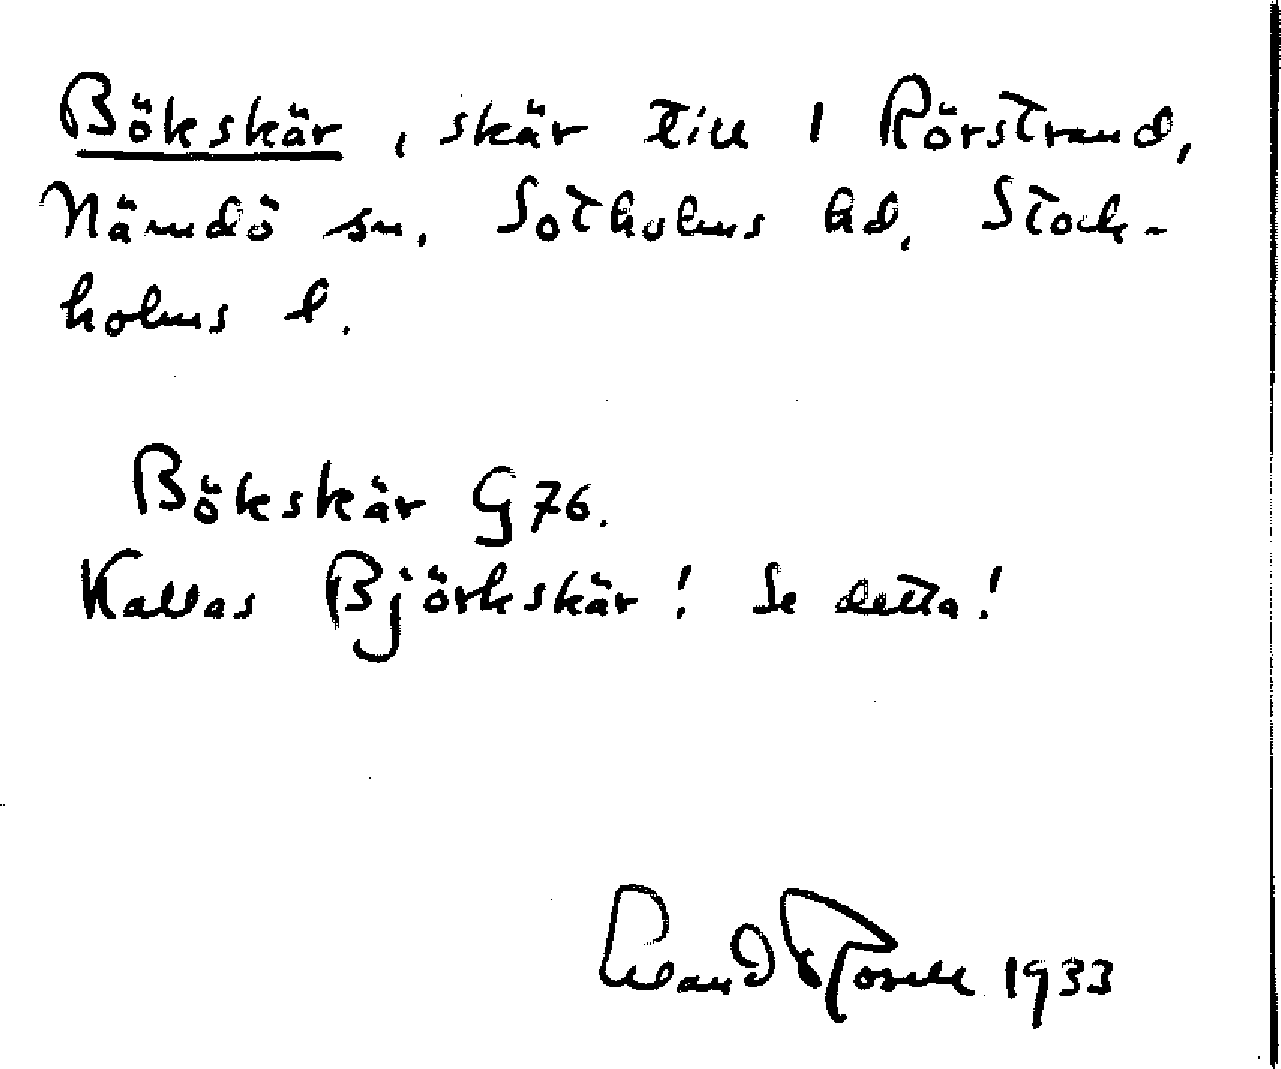 Bökskär, skär till 1 Rörstrand,
Nämdö sn, Sotholms hd, Stock-
holms l.
Bökskär G 76.
Kallas Björkskär! Se detta!
Rosell 1933